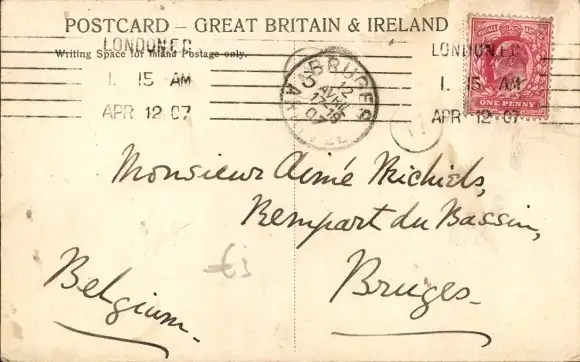 POSTCARD – GREAT BRITAIN & IRELAND
Writing Space for Inland Postage only.
LONDON.E.C
1. 15 AM
APR 12 07
BRUGES
12
AVRIL
07
LONDON.E.C
1. 15 AM
APR 12 07
ONE PENNY
Monsieur Aimé Michiels,
Rempart du Bassin,
Bruges.
Belgium.
£3